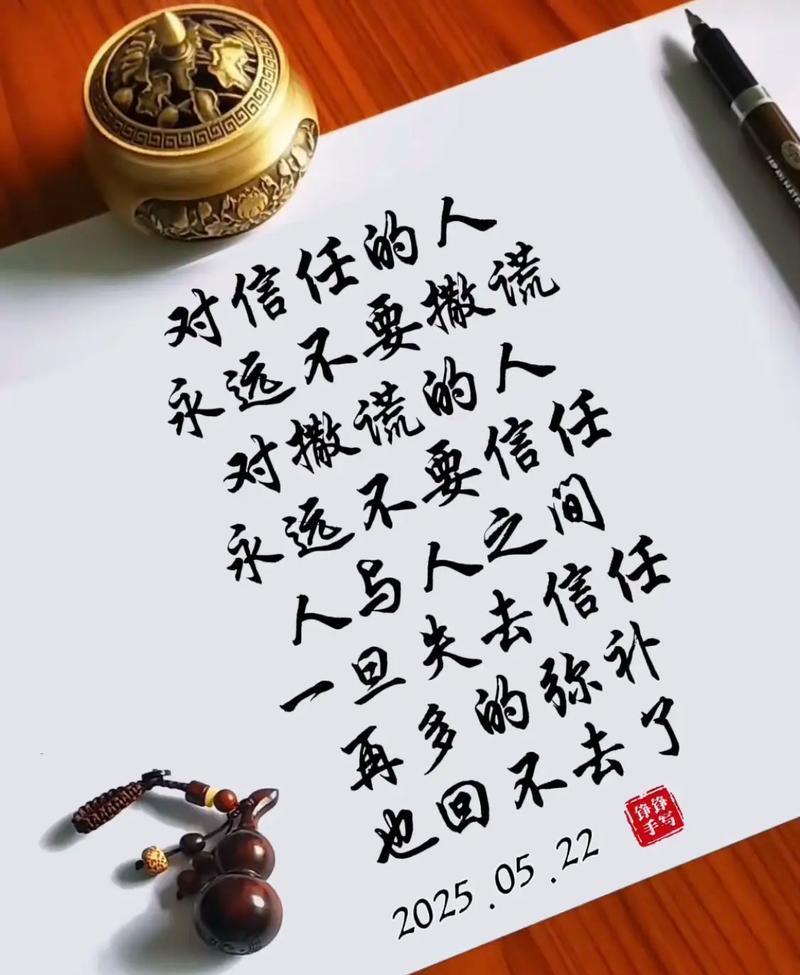 对信任的人
永远不要撒谎
对撒谎的人
永远不要信任
人与人之间
一旦失去信任
再多的弥补
也回不去了
2025.05.22
铮铮
手写